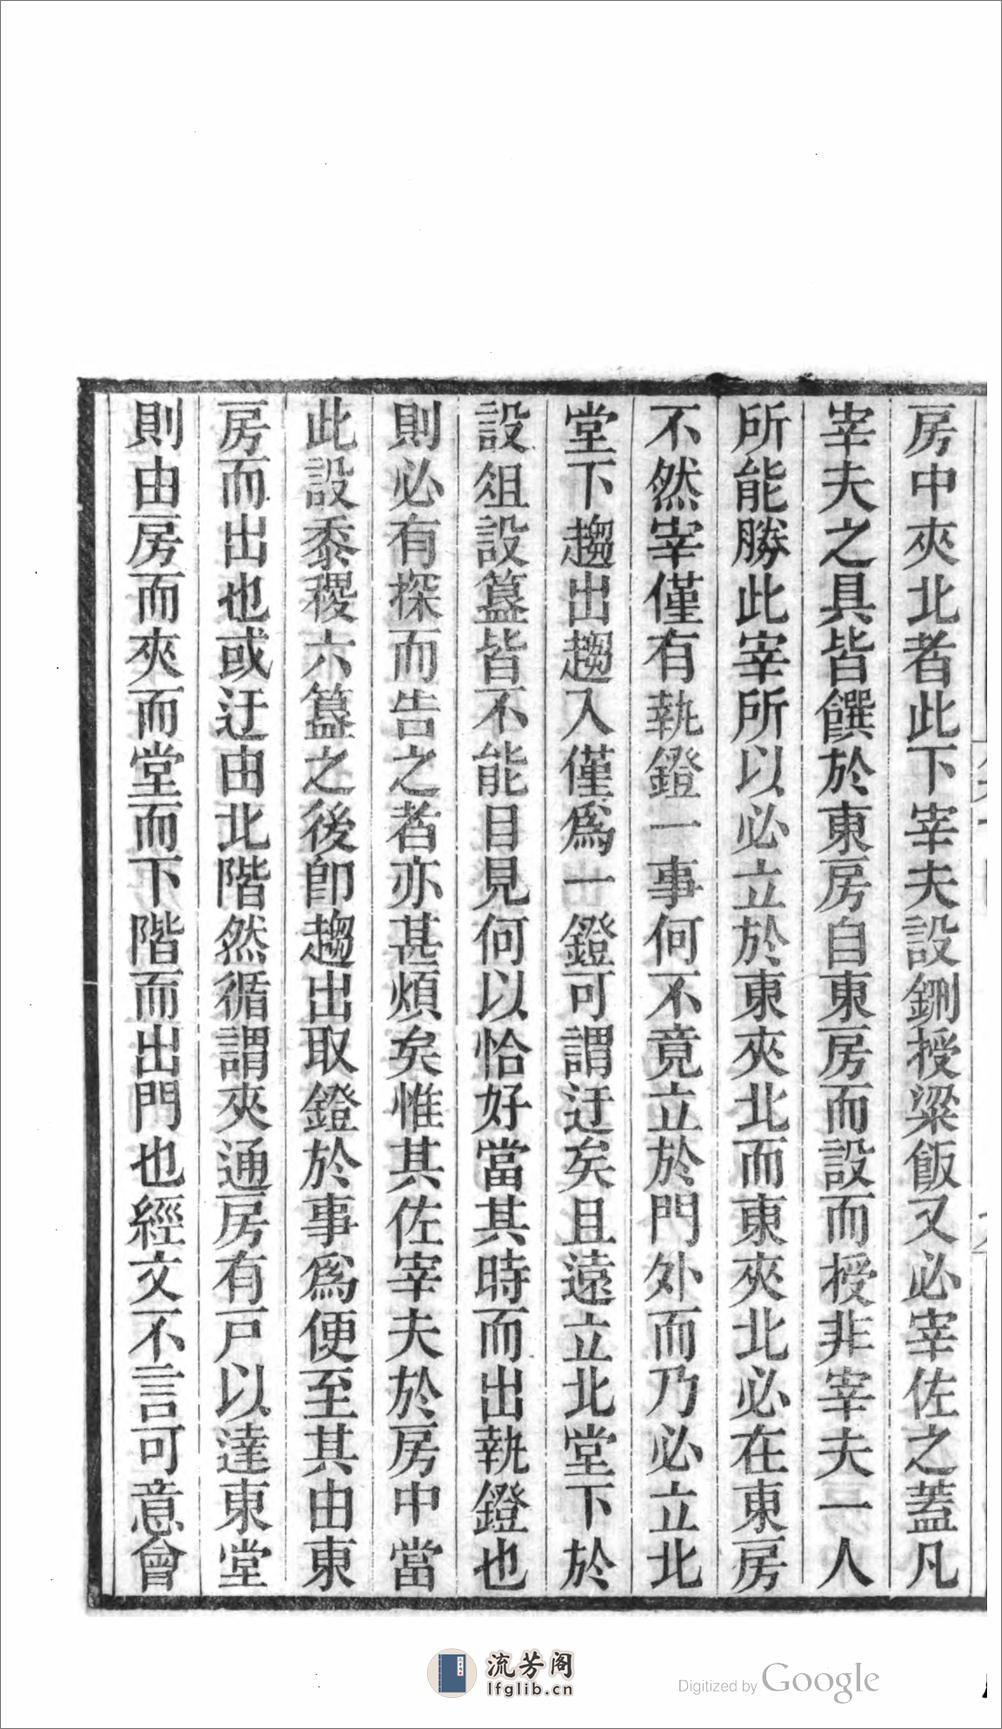 房中夾北者此下宰夫設鉶授粱飯又必宰佐之蓋凡
宰夫之具皆饌於東房自東房而設而授非宰夫一人
所能勝此宰所以必立於東夾北而東夾北必在東房
不然宰僅有執鐙一事何不竟立於門外而乃必立北
堂下趨出趨入僅爲一鐙可謂迂矣且遠立北堂下於
設俎設簋皆不能目見何以恰好當其時而出執鐙也
則必有探而告之者亦甚煩矣惟其佐宰夫於房中當
此設黍稷六簋之後卽趨出取鐙於事爲便至其由東
房而出也或迂由北階然循謂夾通房有戸以達東堂
則由房而夾而堂而下階而出門也經文不言可意會
流芳阁
lfglib.cn
Digitized by Google